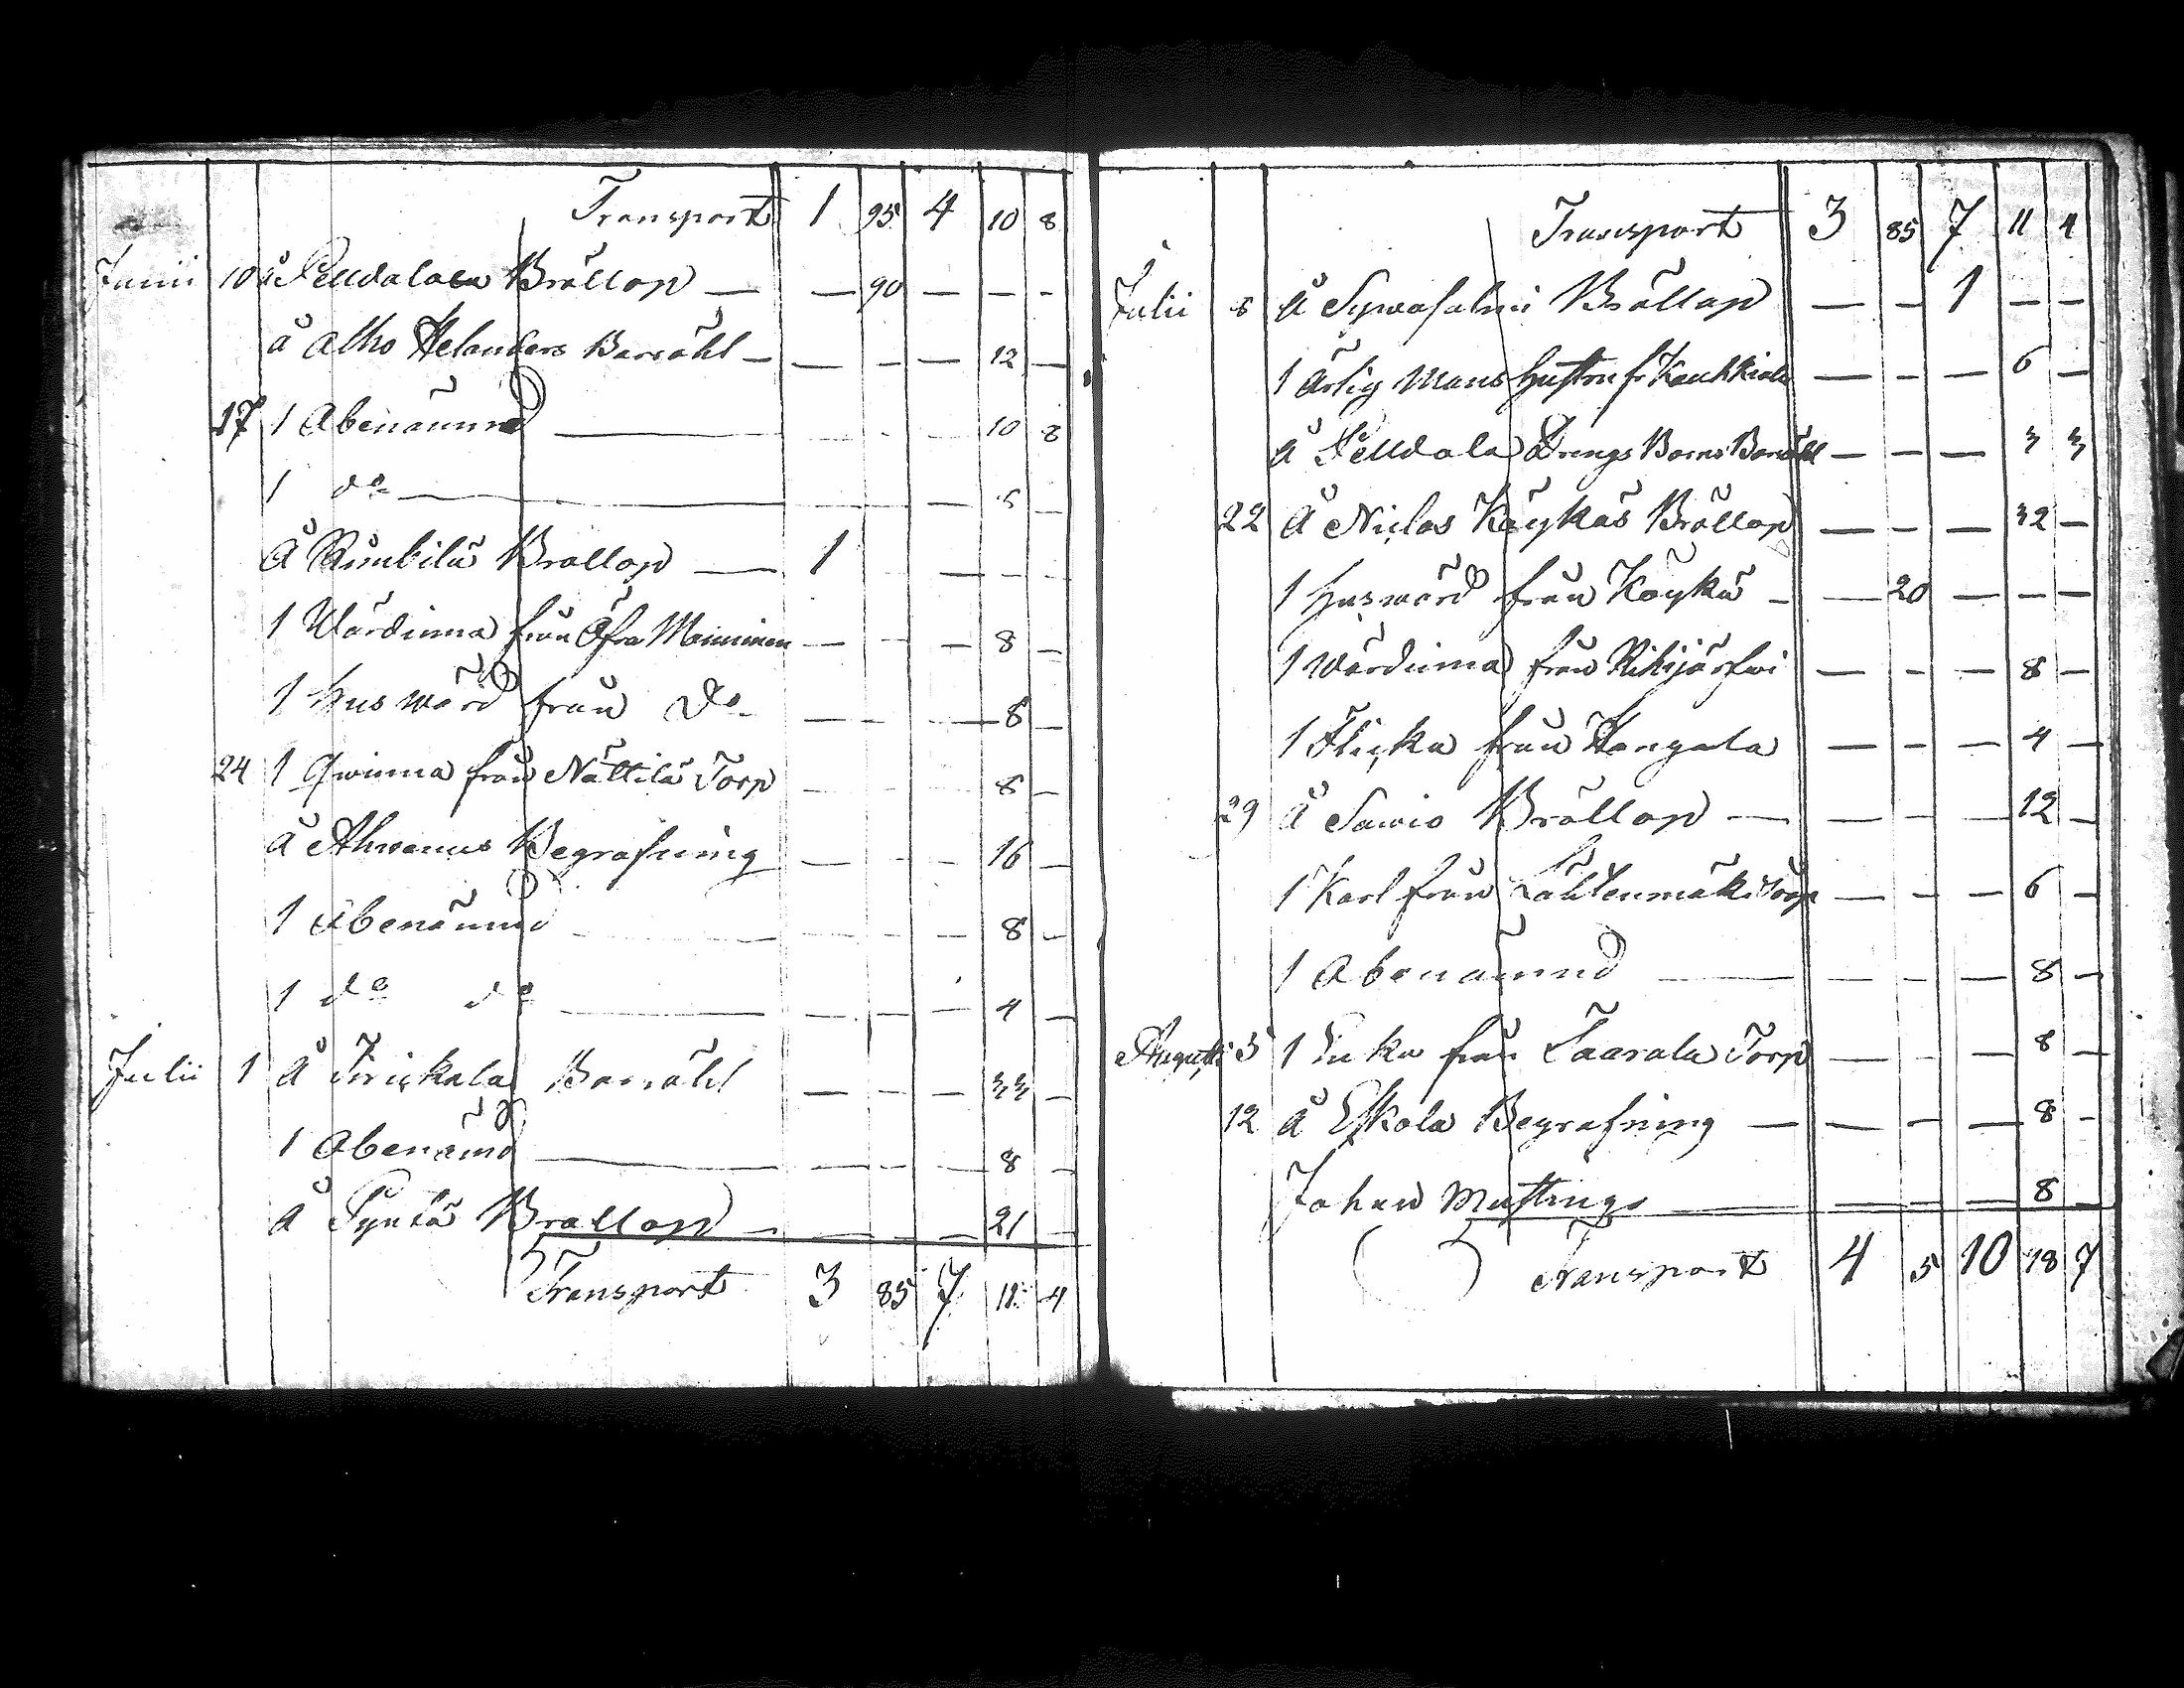 Transport 1 95 4 10 8
Junii 10 å Pelldalalu Bröllop — — 90 — — -
å Alho Helanders Barsöhl — — - — 12 —
17 1 Obenämnd — 10 8
1 do — 5 —
Å Runkila Bröllop — 1 — - -
1 Wärdinna från Öfra Monninen — - — 8 —
1 Huswärd från Do — - — 8 —
24 1 Qwinna från Nättilä Torp 8 —
Å Ahvenus Begrafning — 16 —
1 Obenämnd — 8 —
1 do do — 4 —
Julii 1 Å Frickala Barsöhl — - — 33 —
1 Obenämd — 8 —
å Pyntä Bröllop — — - — 21 —
Transport 3 85 7 11 4
Transport 3 85 7 11 4
Julii 8 å Sywäsalmi Bröllop — — 1 — —
1 Ärlig Mans Hustru fr Kaukkiala — - — 6 —
å Pelldala Drengs Barns Barsöhl — - — 3 3
22 Å Niclas Köykäs Bröllop — - — 32 —
1 Huswärd från Köykä — — 20 — — —
1 Wärdinna från Rihijärfwi — - — 8 —
1 Flicka från Hongola — - — 4 —
29 å Sawio Bröllop — — - — 12 —
1 Karl från Lähtenmäki Torp — - — 6 —
1 Obenämnd — — - — 8 —
Augusti 5 1 Enka från Laarala Torp — - — 8 —
12 å Eskola Begrafning — — - — 8 -
Johan Mustings — — — 8 —
Transport 4 5 10 18 7